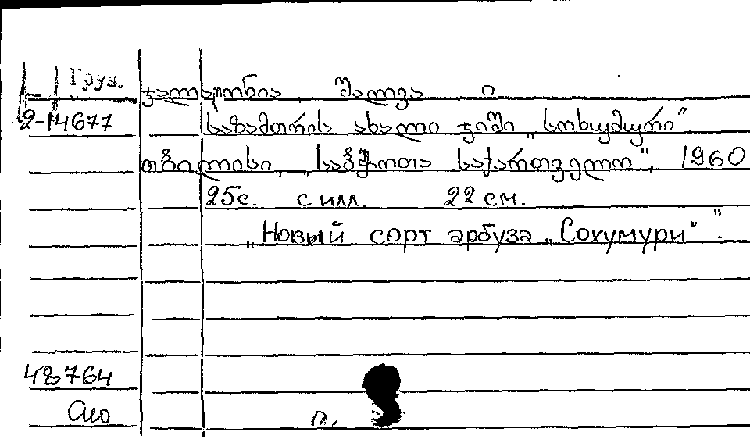 Груз.
ჯალაღონია შალვა ი
2-14677
საზამთროს ახალი ჯიში „სოხუმური“
თბილისი, „საბჭოთა საქართველო“, 1960
25с. с илл. 22 см.
„Новый сорт арбуза „Сокумури“".
48764
п.